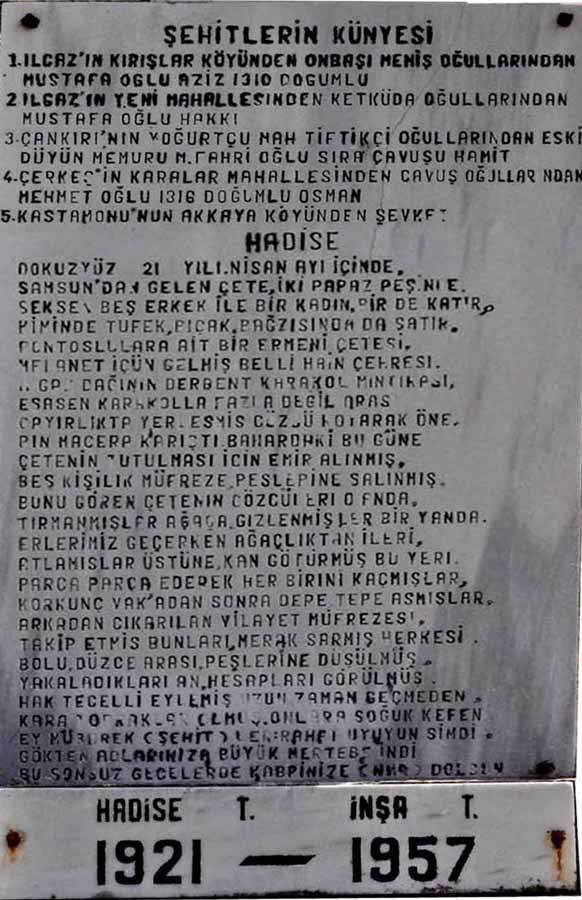 ŞEHİTLERİN KÜNYESİ
1.ILGAZ'IN KIRIŞLAR KÖYÜNDEN ONBAŞI MEMİŞ OĞULLARINDAN
MUSTAFA OGLU AZİZ 1310 DOGUMLU
2 ILGAZ'IN YENİ MAHALLESİNDEN KETKÜDA OĞULLARINDAN
MUSTAFA OĞLU HAKKI
3-ÇANKIRI'NIN YOĞURTÇU MAH TİFTİKÇİ OĞULLARINDAN ESKİ
DÜYÜN MEMURU M.FAHRİ OĞLU SIRA ÇAVUŞU HAMİT
4-ÇERKEŞ'İN KARALAR MAHALLESİNDEN ÇAVUŞ OĞULLARINDAN
MEHMET OĞLU 1316 DOĞUMLU OSMAN
5-KASTAMONU'NUN AKKAYA KÖYÜNDEN ŞEVKET
HADİSE
DOKUZYÜZ 21 YILI.NİSAN AYI İÇİNDE,
SAMSUN'DAN GELEN ÇETE,İKİ PAPAZ PEŞİNDE.
SEKSEN BEŞ ERKEK İLE BİR KADIN,BİR DE KATIR,
KİMİNDE TUFEK,BIÇAK, DA SATIR.
PONTOSLULARA AİT BİR ERMENİ ÇETESİ,
MELANET İÇÜN GELMİŞ BELLİ HAİN ÇEHRESİ.
DAĞININ DERBENT KARAKOL MINTIKASI,
ESASEN KARAKOLLA FAZLA DEGİL ARAS
YERLEŞMİŞ ÖNE.
MACERA KARIŞTI BAHARDAKİ BU GÜNE
ÇETENİN TUTULMASI İÇİN EMİR ALINMIŞ,
BEŞ KİŞİLİK MÜFREZE,PEŞLERİNE SALINMIŞ.
BUNU GÖREN ÇETENİN GÖZCÜLERİ O ANDA,
TIRMANMIŞLAR AĞACA,GIZLENMİŞLER BİR YANDA.
ERLERİMİZ GEÇERKEN AĞAÇLIKTAN İLERİ,
ATLAMISLAR ÜSTÜNE,KAN GÖTÜRMÜŞ BU YERI.
PARCA PARCA EDEREK HER BİRİNİ KAÇMIŞLAR,
KORKUNC VAK'ADAN SONRA DEPE TEPE ASMISLAR.
ARKADAN CIKARILAN VİLAYET MÜFREZESİ,
TAKİP ETMİS BUNLARI,MERAK SARMIŞ HERKESİ.
BOLU,DÜZCE ARASI,PEŞLERİNE DÜŞÜLMÜŞ.
YAKALADIKLARI AN,HESAPLARI GÖRÜLMÜŞ
HAK TECELLİ EYLEMİŞ UZUN ZAMAN GEÇMEDEN.
KARA TOPRAKLAR OLMUŞ,ONLARA SOĞUK KEFEN
EY MÜBAREK (ŞEHİT)LER;RAHAT UYUYUN SİMDİ.
GÖKTEN ADLARINIZA BÜYÜK MERTEBE İNDİ
BU SONSUZ GECELERDE KABRİNİZE (NUR) DOLSUN
HADİSE T. İNŞA T.
1921 — 1957